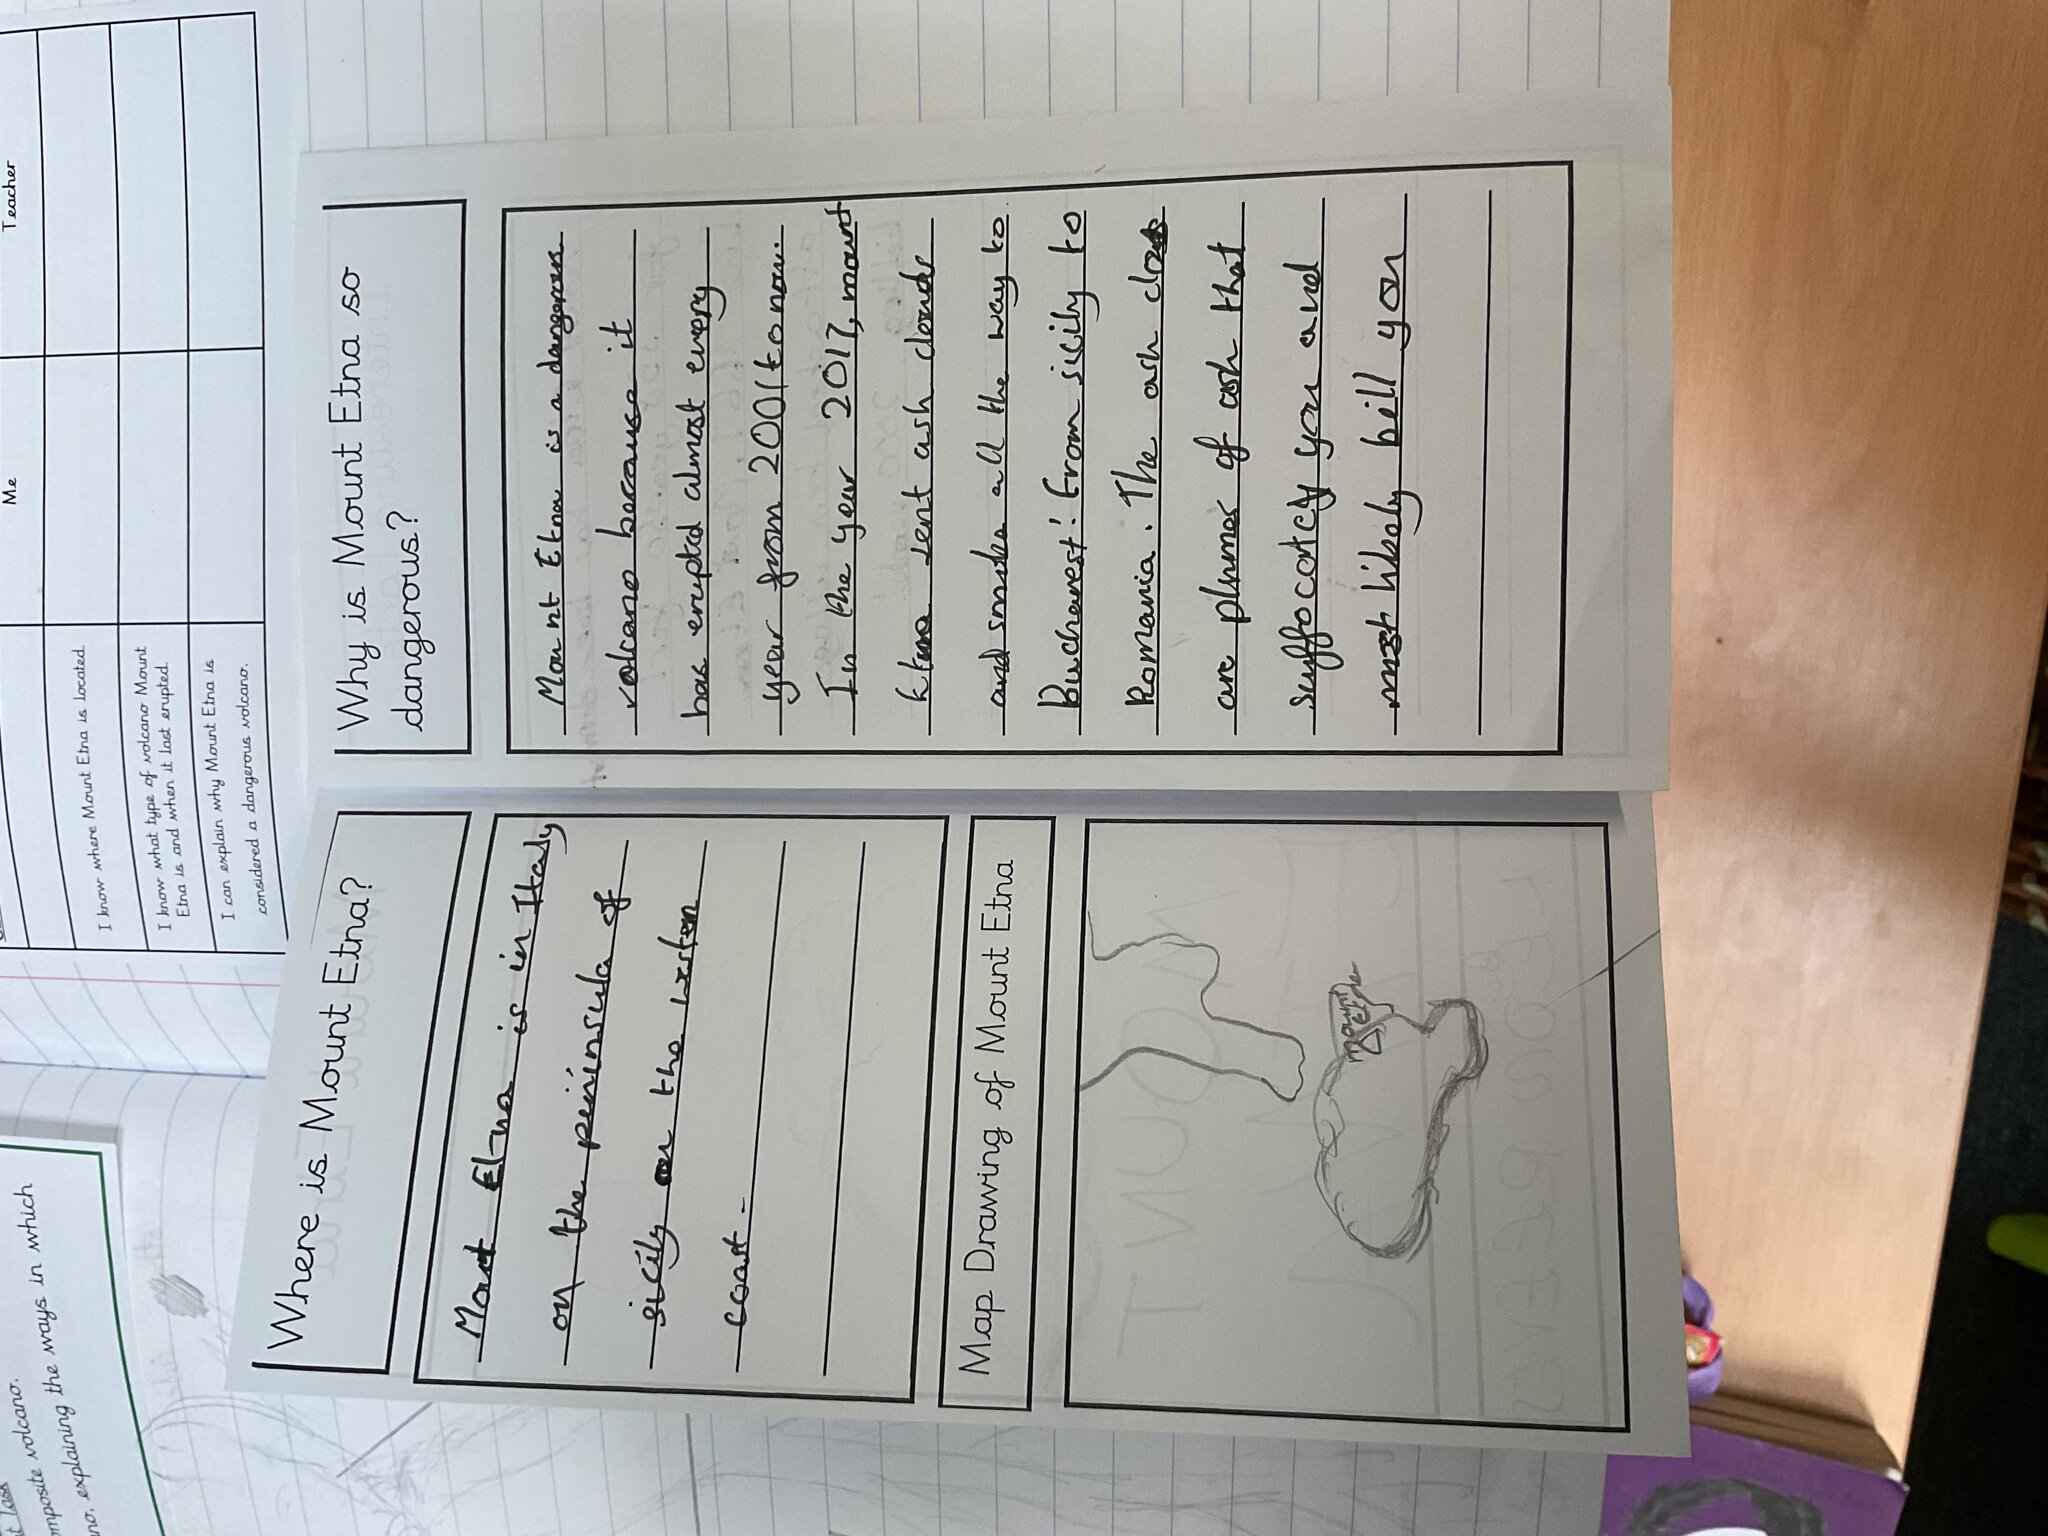 Me
Teacher
I know where Mount Etna is located.
I know what type of volcano Mount
Etna is and when it last erupted.
I can explain why Mount Etna is
considered a dangerous volcano.
omposite volcano.
no, explaining the ways in which
Where is Mount Etna?
Mout Etna is in Italy
on the peninsula of
sicily on the
coast.
Map Drawing of Mount Etna
Mount
Etna
Why is Mount Etna so
dangerous?
Mount Etna is a dangerous
volcano because it
has erupted almost every
year from 2001 to now.
In the year 2017, mount
Etna sent ash clouds
and smoke all the way to
Bucharest! from sicily to
Romania. The ash
are plumes of ash that
you and
most likely kill you